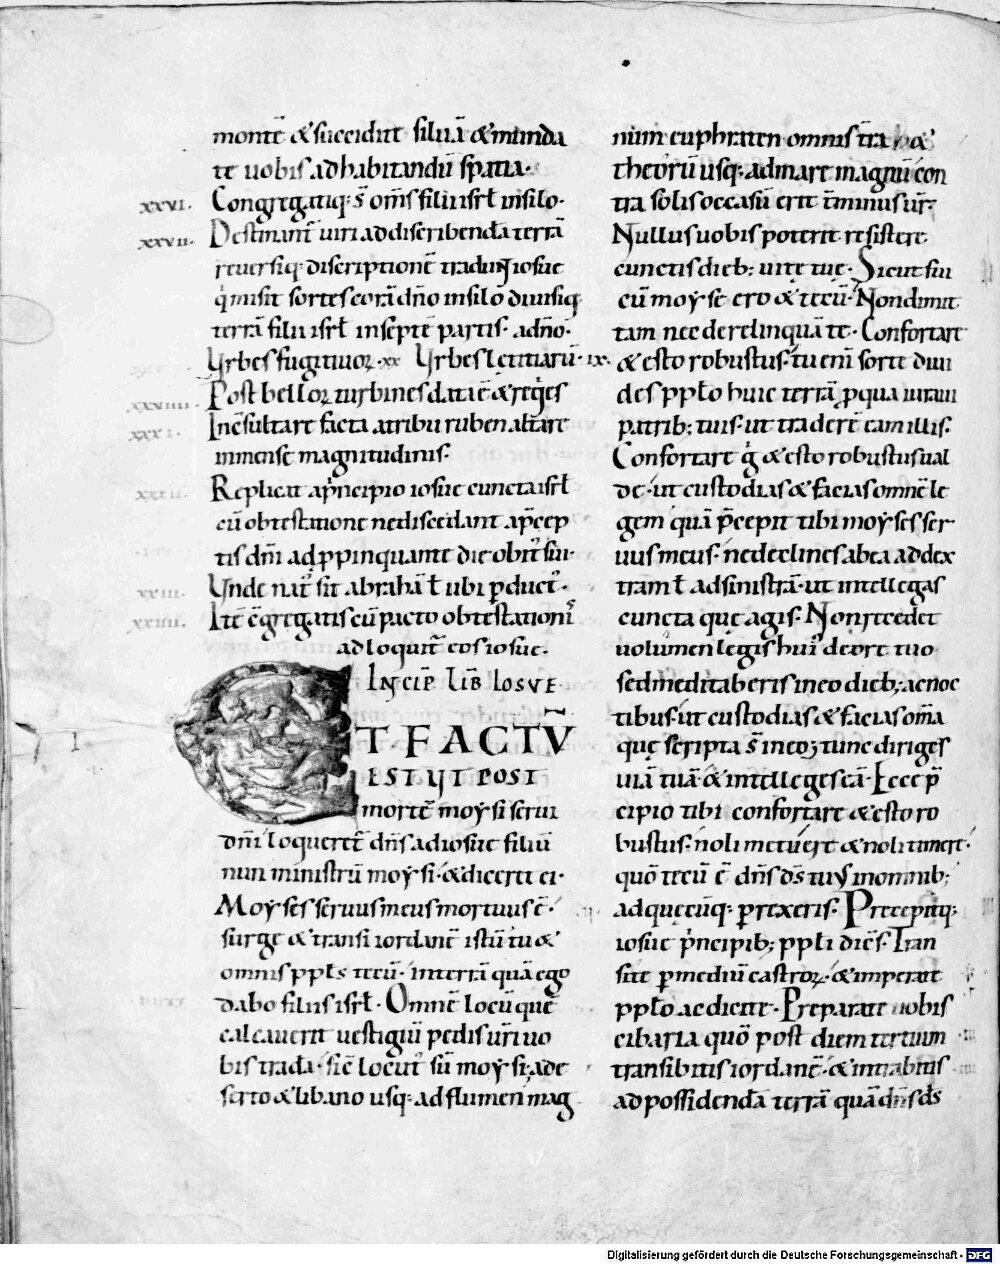 montē & succidite siluā & munda
te uobis ad habitandū spatia.
XXVI. Congregatiq; s̄ om̄s filii isrƚ in silo.
XXVII. Destinant̄ uiri ad discribendā terrā
reuersiq; discriptionē tradunt iosue
q̇ misit sortes corā dn̄o in silo diuisiq;
terrā filii isrƚ in septē partis. ad n̄o.
Vrbes fugitiuoꝝ. xx Vrbes leuitiarū. ix.
XXVIIII. Post belloꝝ turbines data ē & reges
XXXI. Incēsultare facta a tribu ruben altare
inmense magnitudinis.
XXXII. Replicat a p̄ncipio iosue cuncta isrƚ
cū obtestatione ne discedant a p̄cep
tis dn̄i adp̱pinquante die obit᷒ sui.
XXIII. Vnde nat᷒ sit abrahā ƚ ubi ꝑduct᷒.
XXIIII. Itē cōgregatis cū pacto obtestationis
adloquit̄ eos iosue.
INCIP̄ LIB̄ IOSVE.
I ET FACTŪ
EST VT POST
mortē moysi serui
dn̄i loqueret̄ dn̄s ad iosue filiū
nun ministrū moysi. & diceret ei.
Moyses seruus meus mortuus ē.
surge & transi iordanē istū tu &
omnis ppƚs tecū. in terrā quā ego
dabo filiis isrƚ. Omnē locū quē
calcauerit uestigiū pedis ur̄i uo
bis tradā. sic̄ locut᷒ sū moysi; a de
serto & libano usq; ad flumen mag
num euphraten omnis tr̄a &
theorū usq; ad mare magnū con
tra solis occasū erit t̄minus ur̄;
Nullus uobis poterit resistere
cunctis dieb; uite tue. Sicut fui
cū moyse ero & tecū. Non dimit
tam nec derelinquā te. Confortare
& esto robustus. tu eni sorte diui
des ppƚo huic terrā p̱ qua iuraui
patrib; tuis. ut traderē eam illis.
Confortare g̊ & esto robustus ual
de. ut custodias & facias omnē le
gem quā p̄cepit tibi moyses ser
uus meus. ne declines ab ea ad dex
tram ƚ ad sinistrā. ut intellegas
cuncta que agis. Non recedet
uolumen legis hui᷒ de ore tuo
sed meditaberis in eo dieb; ac noc
tibus ut custodias & facias om̄a
que scripta s̄ in eo; tunc diriges
uiā tuā & intelleges eā. Ecce p̄
cipio tibi confortare & esto ro
bustus. noli metuere & noli timere.
quō tecū ē dn̄s ds̄ tuus in omnib;
ad quecūq; ꝑrexeris. Precepitq;
iosue p̄ncipib; ppƚi dicēs. Tran
site ꝑ mediū castroꝝ. & imperate
ppƚo ac dicite. Preparate uobis
cibaria quō post diem tertium
transibitis iordanē. & intrabitis
ad possidendā terrā quā dn̄s ds̄
Digitalisierung gefördert durch die Deutsche Forschungsgemeinschaft - DFG